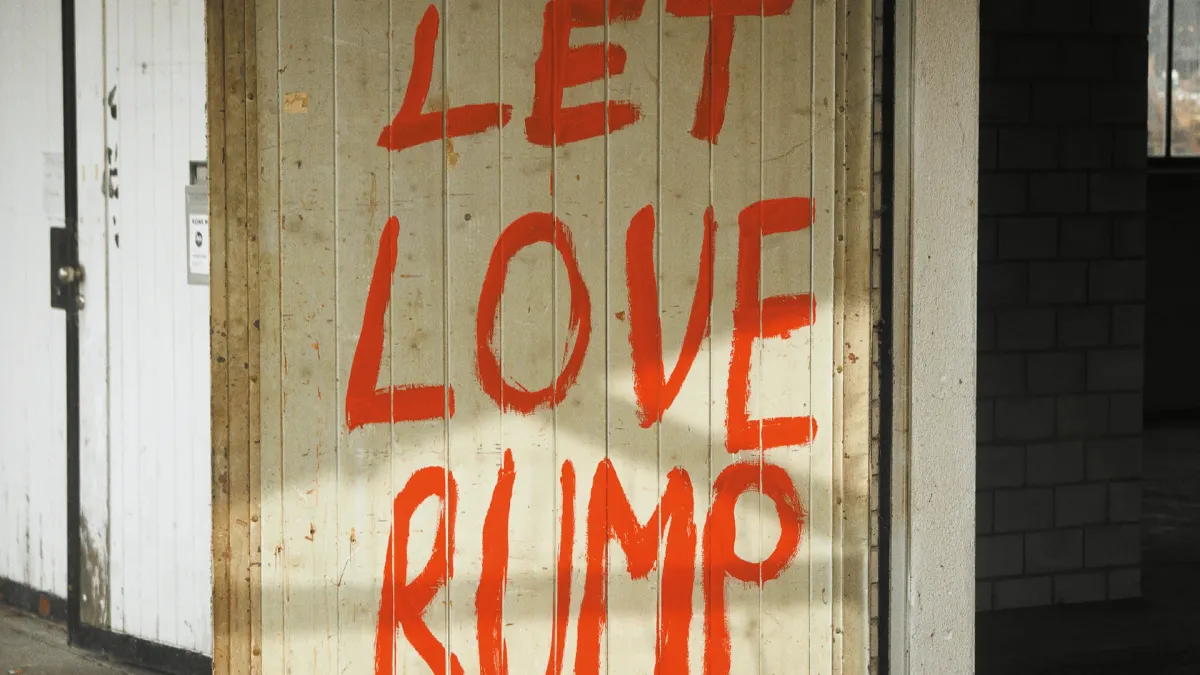 LET
LOVE
RUMP